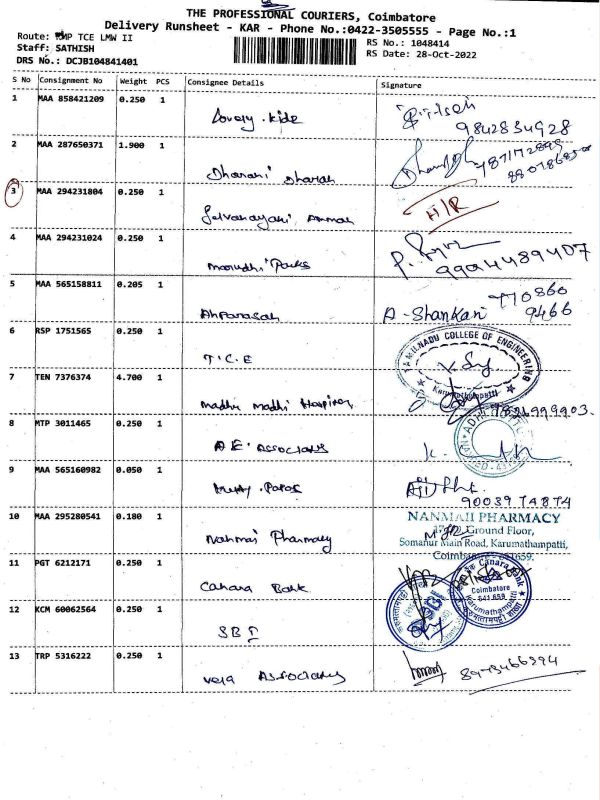 THE PROFESSIONAL COURIERS, Coimbatore
Delivery Runsheet - KAR - Phone No.:0422-3505555 - Page No.:1
Route: TCE LMW II
Staff: SATHISH
DRS No.: DCJB104841401
RS No.: 1048414
RS Date: 28-Oct-2022
S No Consignment No Weight PCS Consignee Details Signature
1 MAA 858421209 0.250 1 Lovely Kids
9842834928
2 MAA 287650371 1.900 1 Dharani Dharan
3 MAA 294231804 0.250 1 Selvanayani Ammal H/R
4 MAA 294231024 0.250 1
9994489407
5 MAA 565158811 0.205 1 A-Shankar
9466
6 RSP 1751565 0.250 1 T.C.E
TAMILNADU COLLEGE OF ENGINEERING
Karumathampatti
7 TEN 7376374 4.700 1 Madhu Madhi Hospital
8 MTP 3011465 0.250 1 A E Associates
9 MAA 565160982 0.050 1
9003974874
10 MAA 295280541 0.180 1 Nanmai Pharmacy
NANMAII PHARMACY
Ground Floor,
Somanur Main Road, Karumathampatti,
Coimbatore - 641659.
11 PGT 6212171 0.250 1 Canara Bank
Canara Bank
Coimbatore
641 659
Karumathampatti
12 KCM 60062564 0.250 1 SBI
13 TRP 5316222 0.250 1 Associates
8973466394